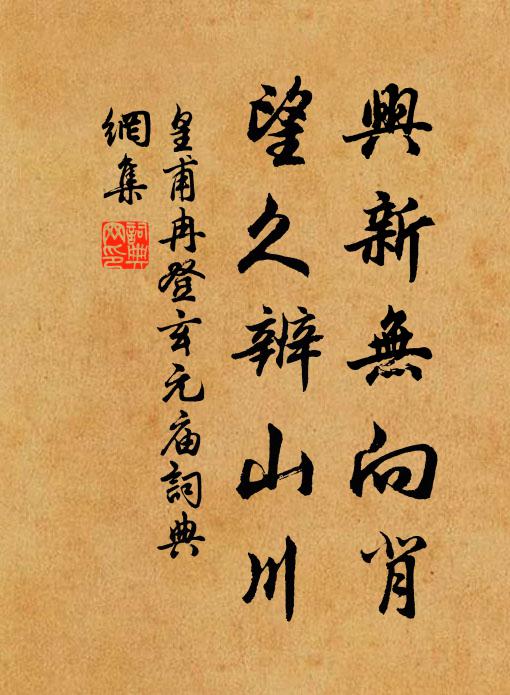 興新無向背
望久辨山川
皇甫冉登玄元庙詞典
網集
詞典
网印